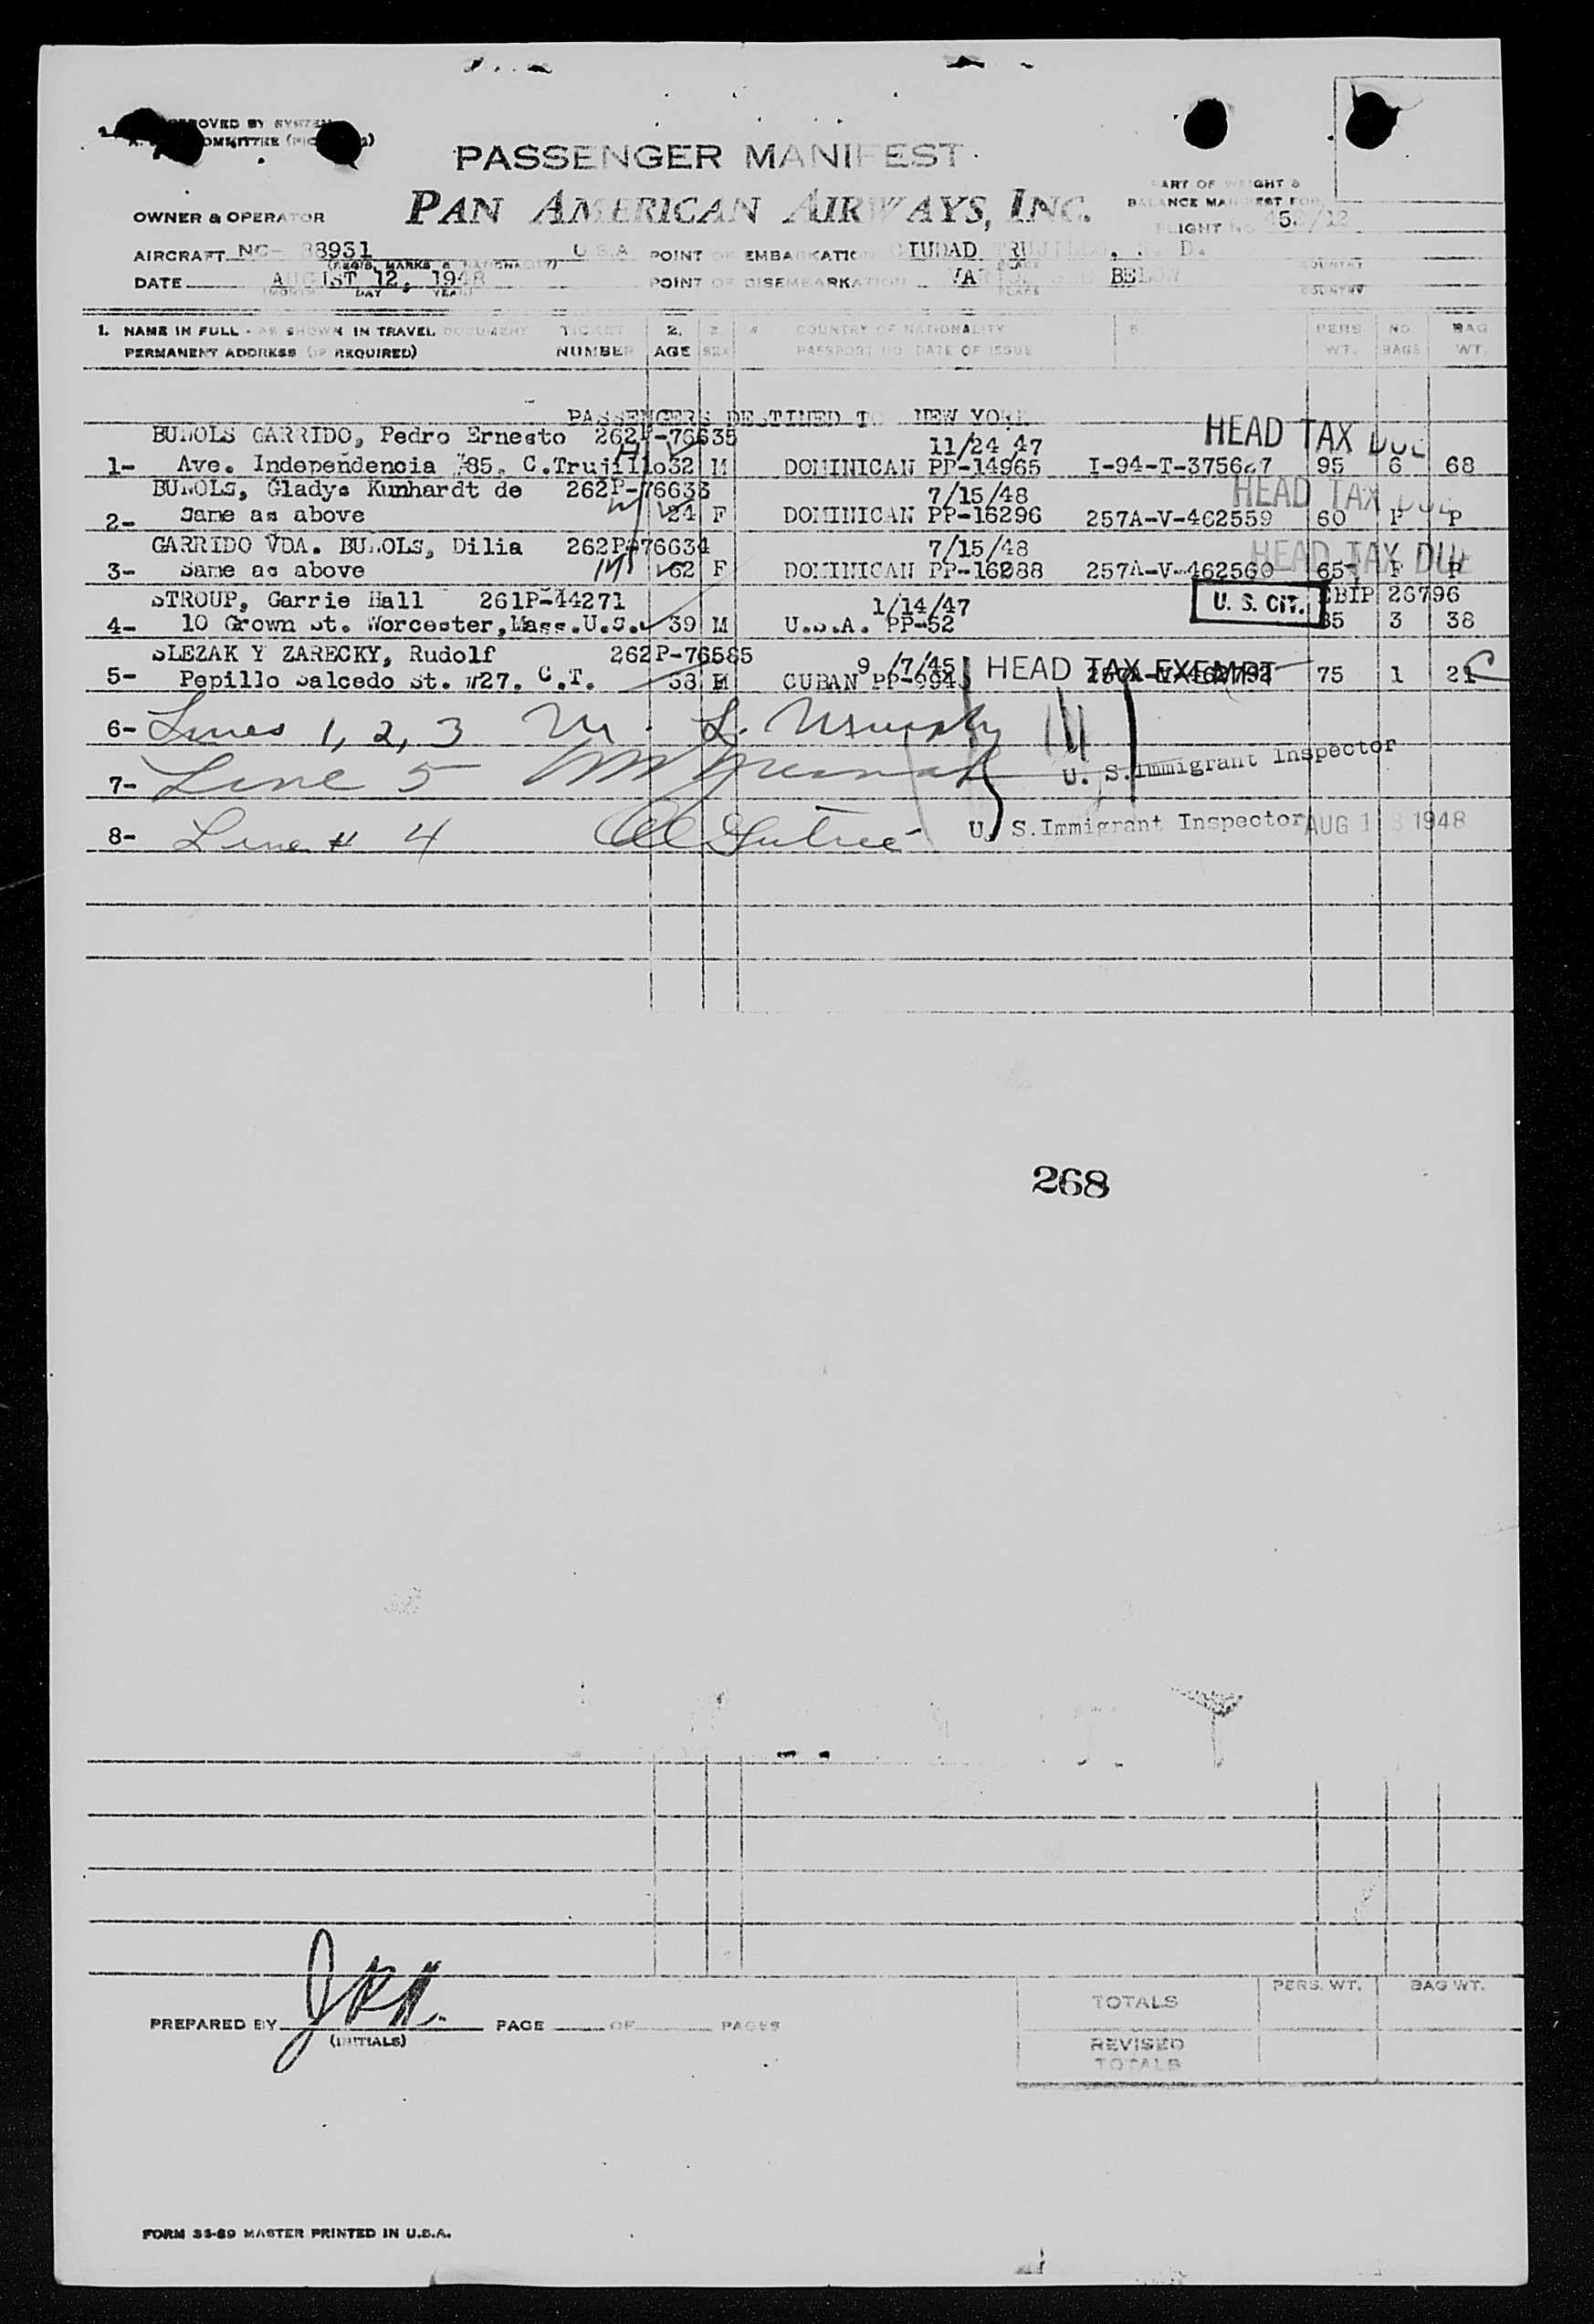 PASSENGER MANIFEST
PAN AMERICAN AIRWAYS, INC.
PART OF WEIGHT &
BALANCE MANIFEST FOR
FLIGHT NO
OWNER & OPERATOR
AIRCRAFT NC- 88931 U.S.A. POINT OF EMBARKATION CIUDAD TRUJILLO, R. D.
(REGIS. MARKS & NATIONALITY) PLACE COUNTRY
DATE AUGUST 12, 1948 POINT OF DISEMBARKATION VARIOUS BELOW
(MONTH DAY YEAR) PLACE COUNTRY
1. NAME IN FULL - AS SHOWN IN TRAVEL DOCUMENT TICKET 2. 3 4 COUNTRY OF NATIONALITY 5. PERS NO. BAG
PERMANENT ADDRESS (IF REQUIRED) NUMBER AGE SEX PASSPORT NO. DATE OF ISSUE WT. BAGS WT.
PASSENGERS DESTINED TO NEW YORK
GARRIDO, Pedro Ernesto 262P-76635 11/24/47 HEAD TAX DUE
1- Ave. Independencia 85. C.Trujillo 32 M DOMINICAN PP-14965 I-94-T-375627 95 6 68
Gladys Kunhardt de 262P-76633 7/15/48 HEAD TAX DUE
2- Same as above 24 F DOMINICAN PP-16296 257A-V-462559 60 P P
GARRIDO VDA. Dilia 262P-76634 7/15/48 HEAD TAX DUE
3- Same as above 62 F DOMINICAN PP-16288 257A-V-462560 65 P P
STROUP, Garrie Hall 261P-44271 1/14/47 U. S. CIT. 26796
4- 10 Crown St. Worcester, Mass. U.S. 39 M U.S.A. PP-52 85 3 38
SLEZAK Y ZARECKY, Rudolf 262P-76585 9/7/45 HEAD TAX EXEMPT
5- Pepillo Salcedo St. #27. C.T. 38 M CUBAN 75 1 21
6- Lines 1, 2, 3
7- Line 5 U. S. Immigrant Inspector
8- Line # 4 U. S. Immigrant Inspector AUG 13 1948
268
PREPARED BY PAGE OF PAGES
(INITIALS)
PERS. WT. BAG WT.
TOTALS
REVISED
TOTALS
FORM 33-89 MASTER PRINTED IN U.S.A.